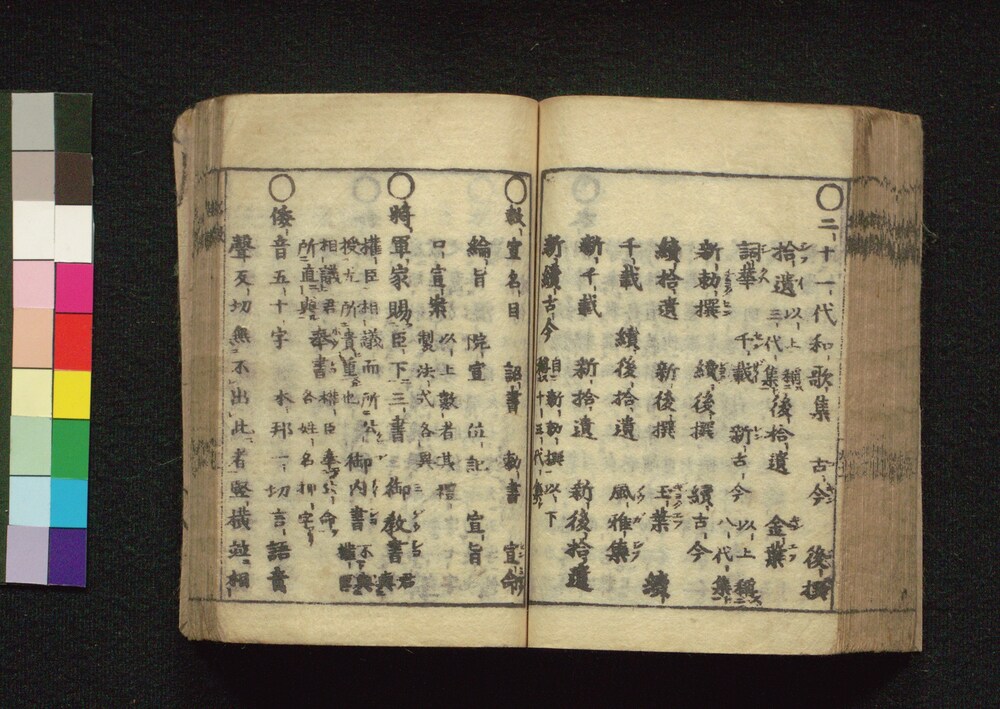 〇二十一代和歌集 古今 後撰
拾遺 以上稱三代集 後拾遺 金葉
詞華 千載 新古今 以上稱八代集
新勅撰 續後撰 續古今
續拾遺 新後撰 玉葉 續
千載 續後拾遺 風雅集
新千載 新拾遺 新後拾遺
新續古今 自新勅撰以下稱十三代集
〇敕宣名目 詔書 勅書 宣命
綸旨 院宣 位記 宣旨
口宣案 以上數者其禮
製法式各異
〇將軍家賜臣下三書 御教書 君
權臣相議而所公 御内書 不與權臣
授左所貴重也
相議君 奉書 權臣奉公命
所直與 各姓名押字
〇倭音五十字 本邦一切言語音
聲反切無不出此者竪横並相